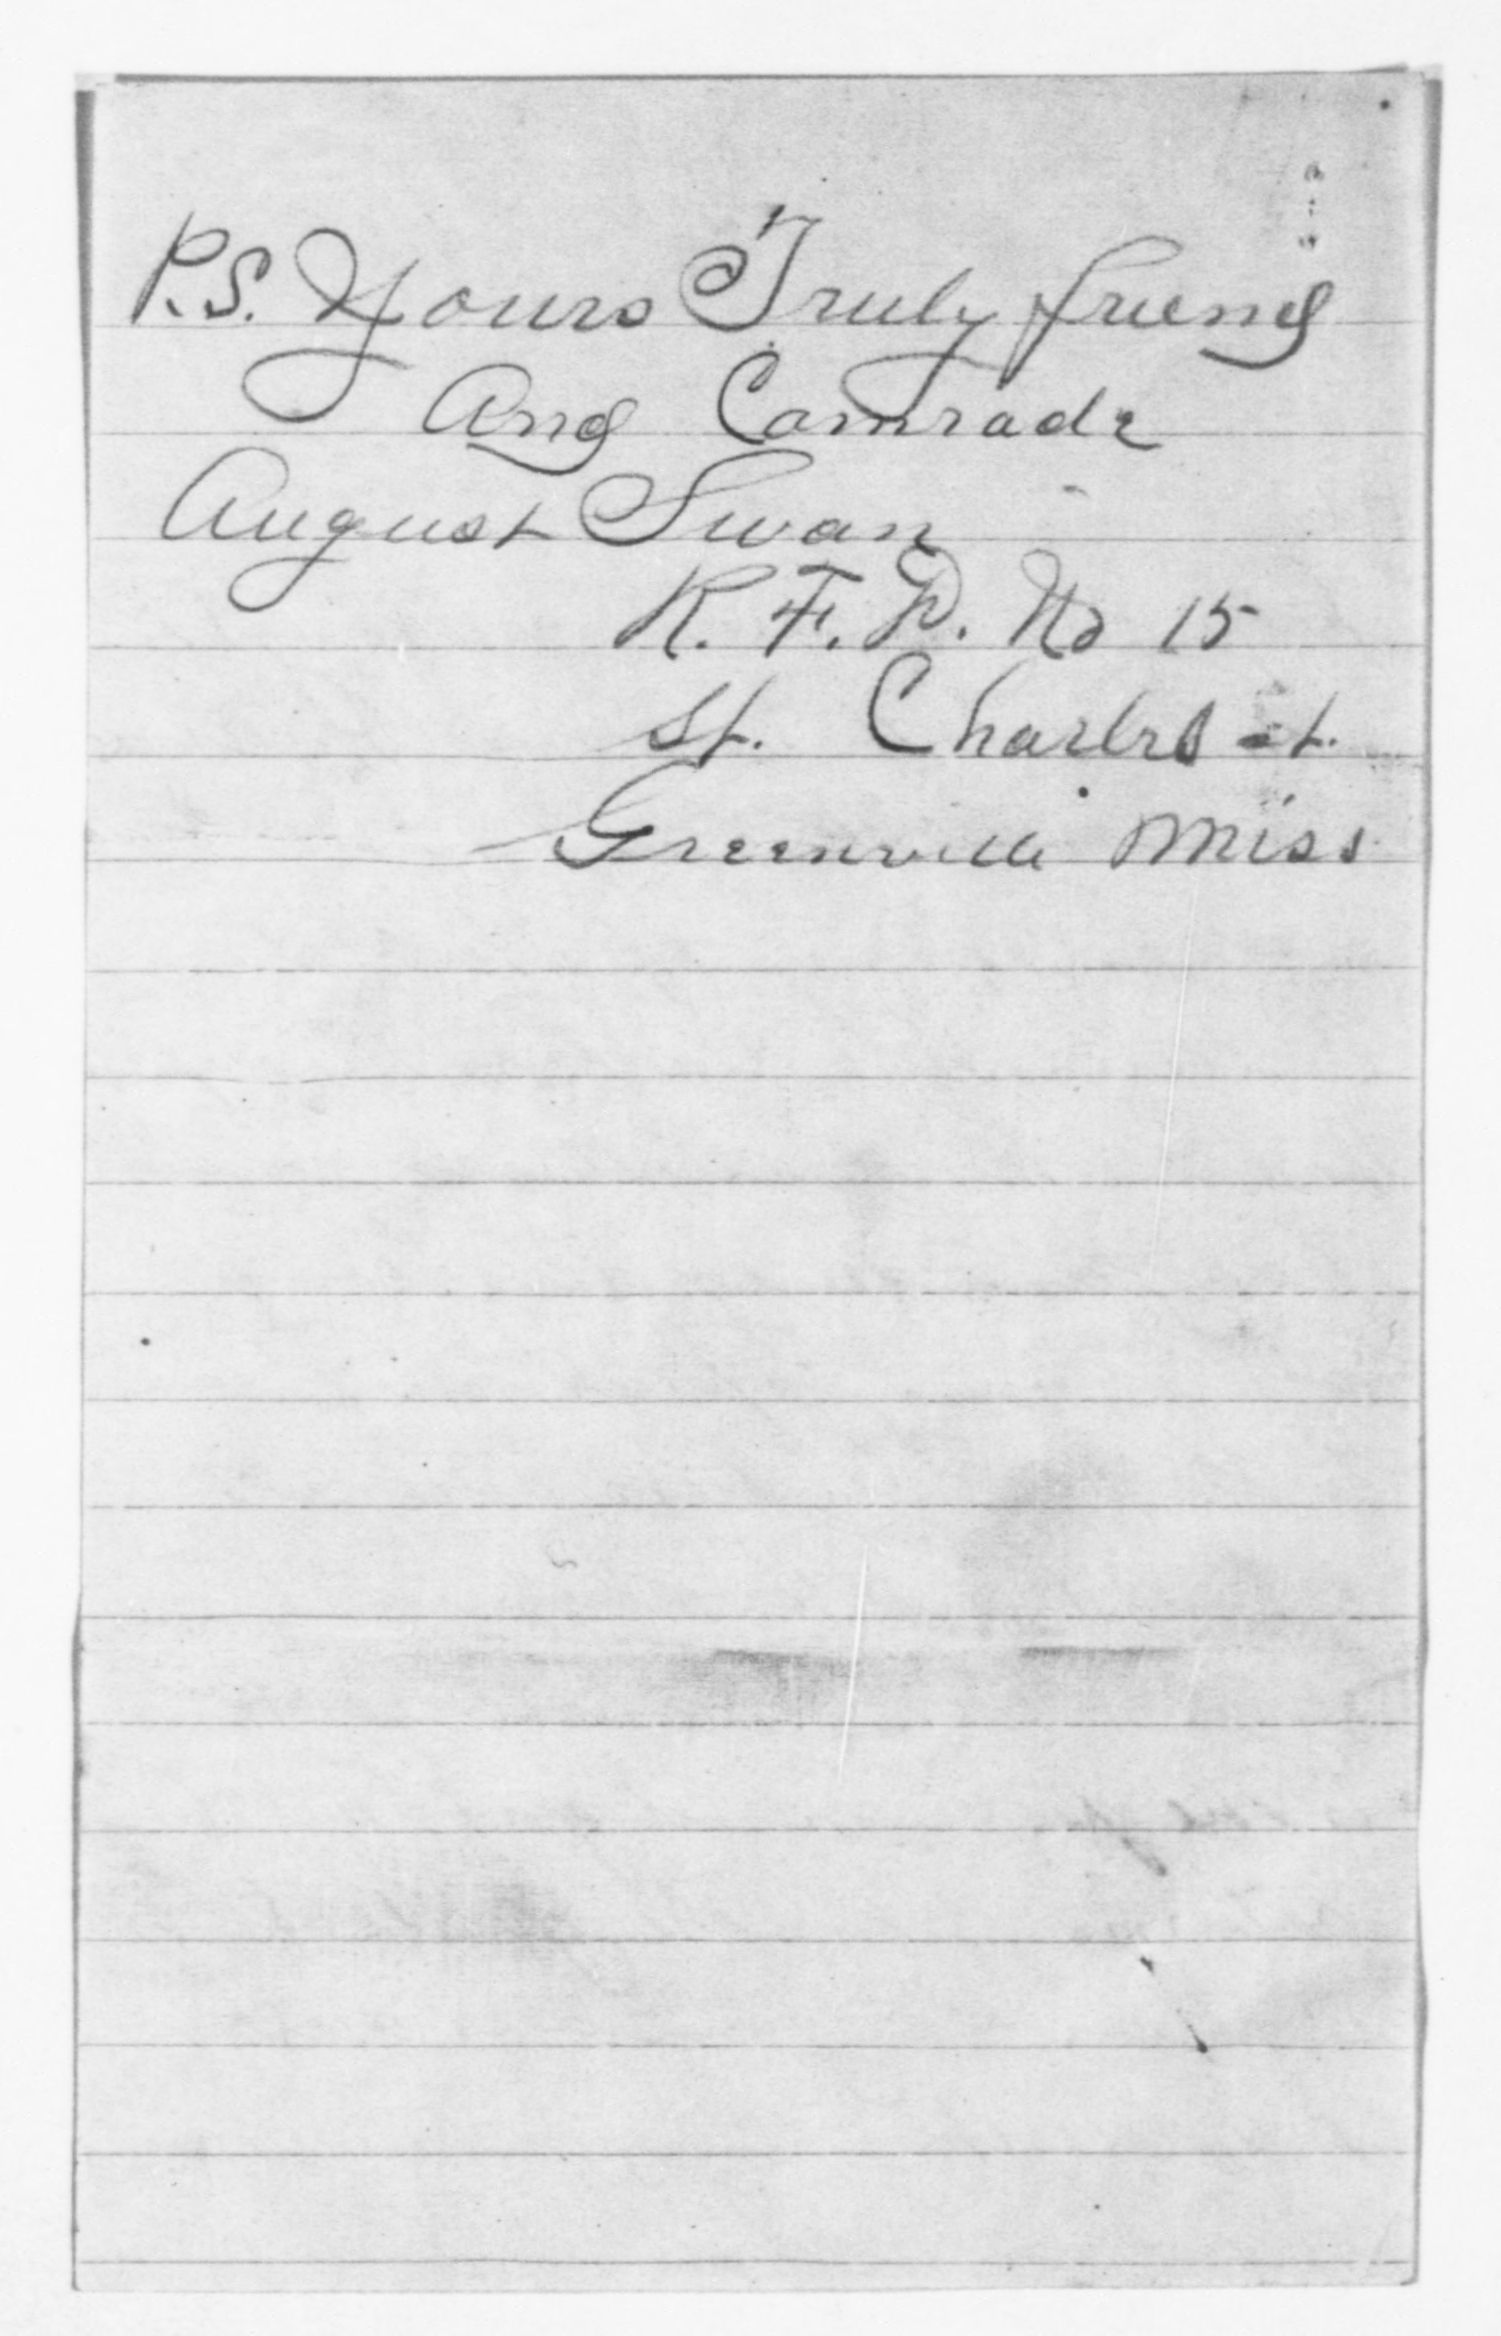 P.S. Yours Truly friend
And Comrade
August Swan
R. F. D. No 15
St. Charles st.
Greenville Miss